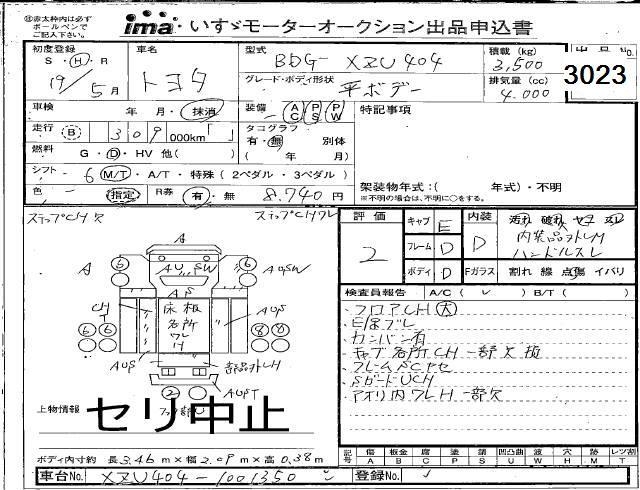 ㊟赤太枠内は必ず
ボールペンで
ご記入下さい。
ima いすゞモーターオークション出品申込書
初度登録 車名 型式 積載 (kg) 出品No.
S・H・R トヨタ BDG- XZU404 3,500
19/5月 グレード・ボディ形状 平ボデー 排気量 (cc) 4.000
3023
車検 年 月・抹消 装備 AC PS PW 特記事項
走行 B 309 000km「 」 タコグラフ
有・無 別体
燃料 G・D・HV 他( ) ( 年 月)
シフト 6 M/T・A/T・特殊(2ペダル・3ペダル)
架装物年式:( 年式)・不明
色 - 指定 R券 有・無 8.740円
※不明の場合は、不明に○をする。
ステップCH欠 ステップCHワレ
評価 2 キャブ E 内装 D
フレーム D
ボディ D Fガラス 割れ 線 点傷 イバリ
内装品外レH
ハンドルスレ
検査員報告 A/C( ✓ ) B/T( )
フロアCH 大
カンバン有
キャブ各所CH 一部欠損
SガードUCH
アオリ内ワレH 一部欠
A
A 6 AU SW 6 AUSW
AP
CH 床板 各所 ワレ H AUS
6 6 8 8
AUS 部品外レH
2 AUST
上物情報
セリ中止
ボディ内寸約 長3.46m×幅2.09m×高0.38m
記号 傷 板金 腐 塗 錆 凹凸曲 波 穴 跡 レツ割
A B C P S U W H M T
車台No. XZU404-1001350 登録No.